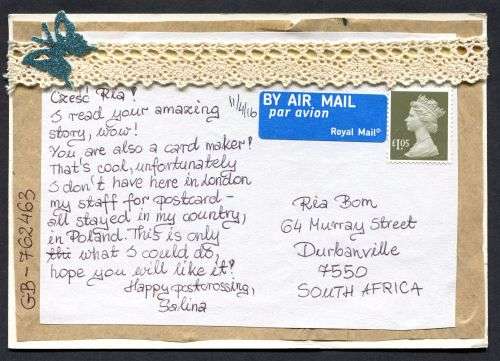 Cześć Ria!
I read your amazing
story, wow!
You are also a card maker?
That's cool, unfortunately
I don't have here in London
my staff for postcard –
all stayed in my country,
in Poland. This is only
what I could do,
hope you will like it!
Happy postcrossing,
Galina
11/4/16
BY AIR MAIL
par avion
Royal Mail®
£1.05
Ria Bom
64 Murray Street
Durbanville
7550
SOUTH AFRICA
GB-762463